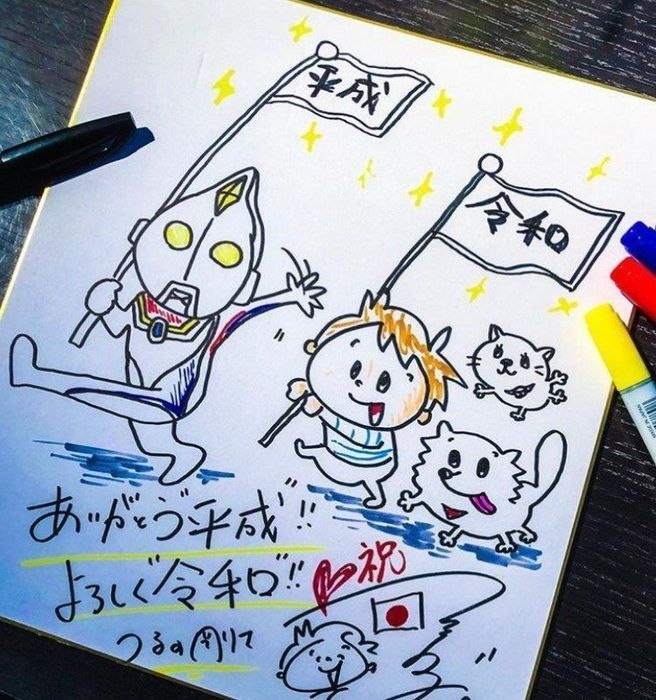 平成
令和
ありがとう"平成"!!
よろしく"令和"!!
祝
つるの剛士
MADE IN JAPAN